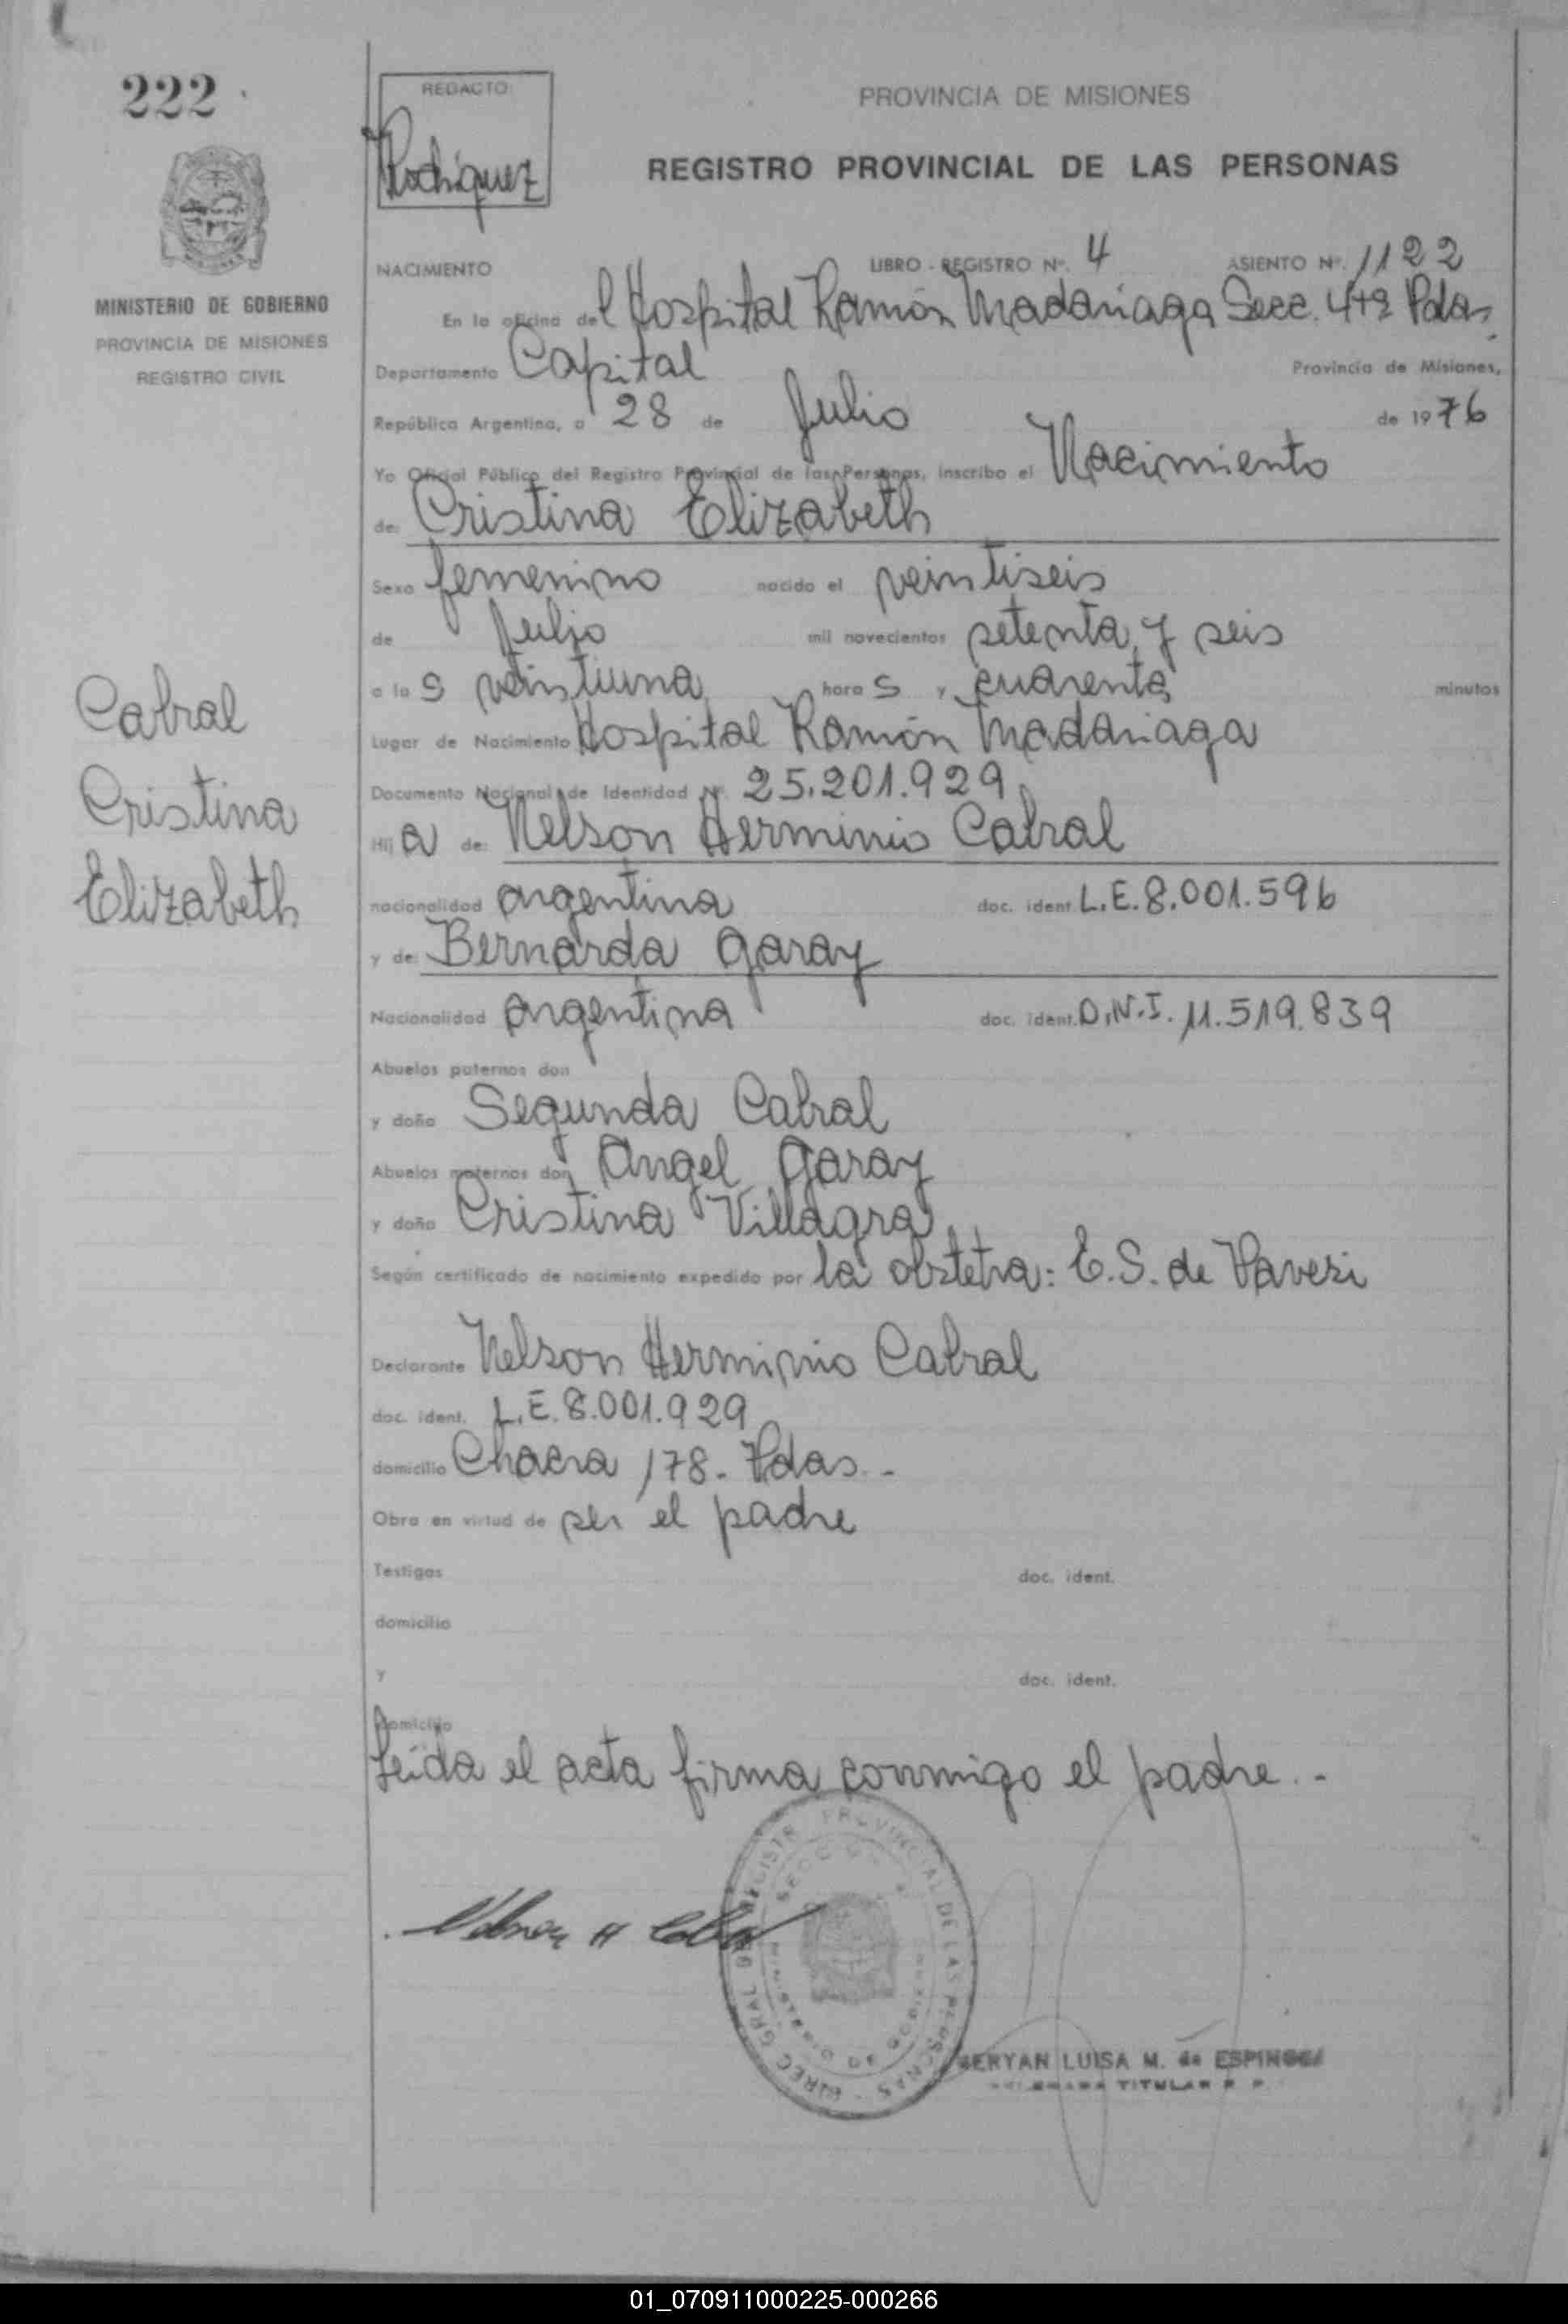 222
REDACTO:
Rodríguez
PROVINCIA DE MISIONES
REGISTRO PROVINCIAL DE LAS PERSONAS
MINISTERIO DE GOBIERNO
PROVINCIA DE MISIONES
REGISTRO CIVIL
NACIMIENTO LIBRO - REGISTRO Nº. 4 ASIENTO Nº. 1122
En la oficina del Hospital Ramón Madariaga Secc. 4ta Pdas.
Departamento Capital Provincia de Misiones,
República Argentina, a 28 de Julio de 1976
Yo Oficial Público del Registro Provincial de las Personas, inscribo el Nacimiento
de: Cristina Elizabeth
Sexo femenino nacido el veintiseis
de Julio mil novecientos setenta y seis
a las veintiuna horas y cuarenta minutos
Lugar de Nacimiento Hospital Ramón Madariaga
Documento Nacional de Identidad Nº. 25.201.929
Hija de: Nelson Herminio Cabral
nacionalidad argentina doc. ident. L.E. 8.001.596
y de: Bernarda Garay
Nacionalidad argentina doc. ident. D.N.I. 11.519.839
Abuelos paternos don
y doña Segunda Cabral
Abuelos maternos don Angel Garay
y doña Cristina Villagra
Según certificado de nacimiento expedido por la obstetra: E.S. de Pavesi
Declarante Nelson Herminio Cabral
doc. ident. L.E. 8.001.929
domicilio Chacra 178. Pdas.-
Obra en virtud de ser el padre
Testigos doc. ident.
domicilio
y doc. ident.
domicilio
Leída el acta firma conmigo el padre.-
Cabral
Cristina
Elizabeth
DIREC GRAL DE REGISTR PROVINCIAL DE LAS PERSONAS
LUISA M. de ESPINOSA
TITULAR
01_070911000225-000266